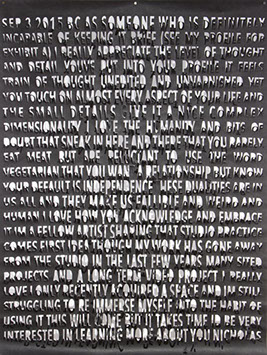 SEP 3 2015 BC AS SOMEONE WHO IS DEFINITELY
INCAPABLE OF KEEPING IT BRIEF (SEE MY PROFILE FOR
EXHIBIT A) I REALLY APPRECIATE THE LEVEL OF THOUGHT
AND DETAIL YOU'VE PUT INTO YOUR PROFILE IT FEELS
TRAIN OF THOUGHT UNEDITED AND UNVARNISHED YET
YOU TOUCH ON ALMOST EVERY ASPECT OF YOUR LIFE AND
THE SMALL DETAILS GIVE IT A NICE COMPLEX
DIMENSIONALITY I LOVE THE HUMANITY AND BITS OF
DOUBT THAT SNEAK IN HERE AND THERE THAT YOU RARELY
EAT MEAT BUT ARE RELUCTANT TO USE THE WORD
VEGETARIAN THAT YOU WANT A RELATIONSHIP BUT KNOW
YOUR DEFAULT IS INDEPENDENCE THESE DUALITIES ARE IN
US ALL AND THEY MAKE US FALLIBLE AND WEIRD AND
HUMAN I LOVE HOW YOU ACKNOWLEDGE AND EMBRACE
IT IM A FELLOW ARTIST SHARING THAT STUDIO PRACTICE
COMES FIRST IDEA THOUGH MY WORK HAS GONE AWAY
FROM THE STUDIO IN THE LAST FEW YEARS MANY SITED
PROJECTS AND A LONG TERM VIDEO PROJECT I REALLY
LOVE I ONLY RECENTLY ACQUIRED A SPACE AND IM STILL
STRUGGLING TO RE IMMERSE MYSELF INTO THE HABIT OF
USING IT THIS WILL COME BUT IT TAKES TIME ID BE VERY
INTERESTED IN LEARNING MORE ABOUT YOU NICHOLAS